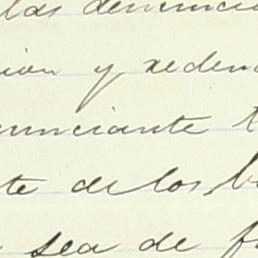 las denuncia
ion y reden
nunciante t
te de los b
sea de f